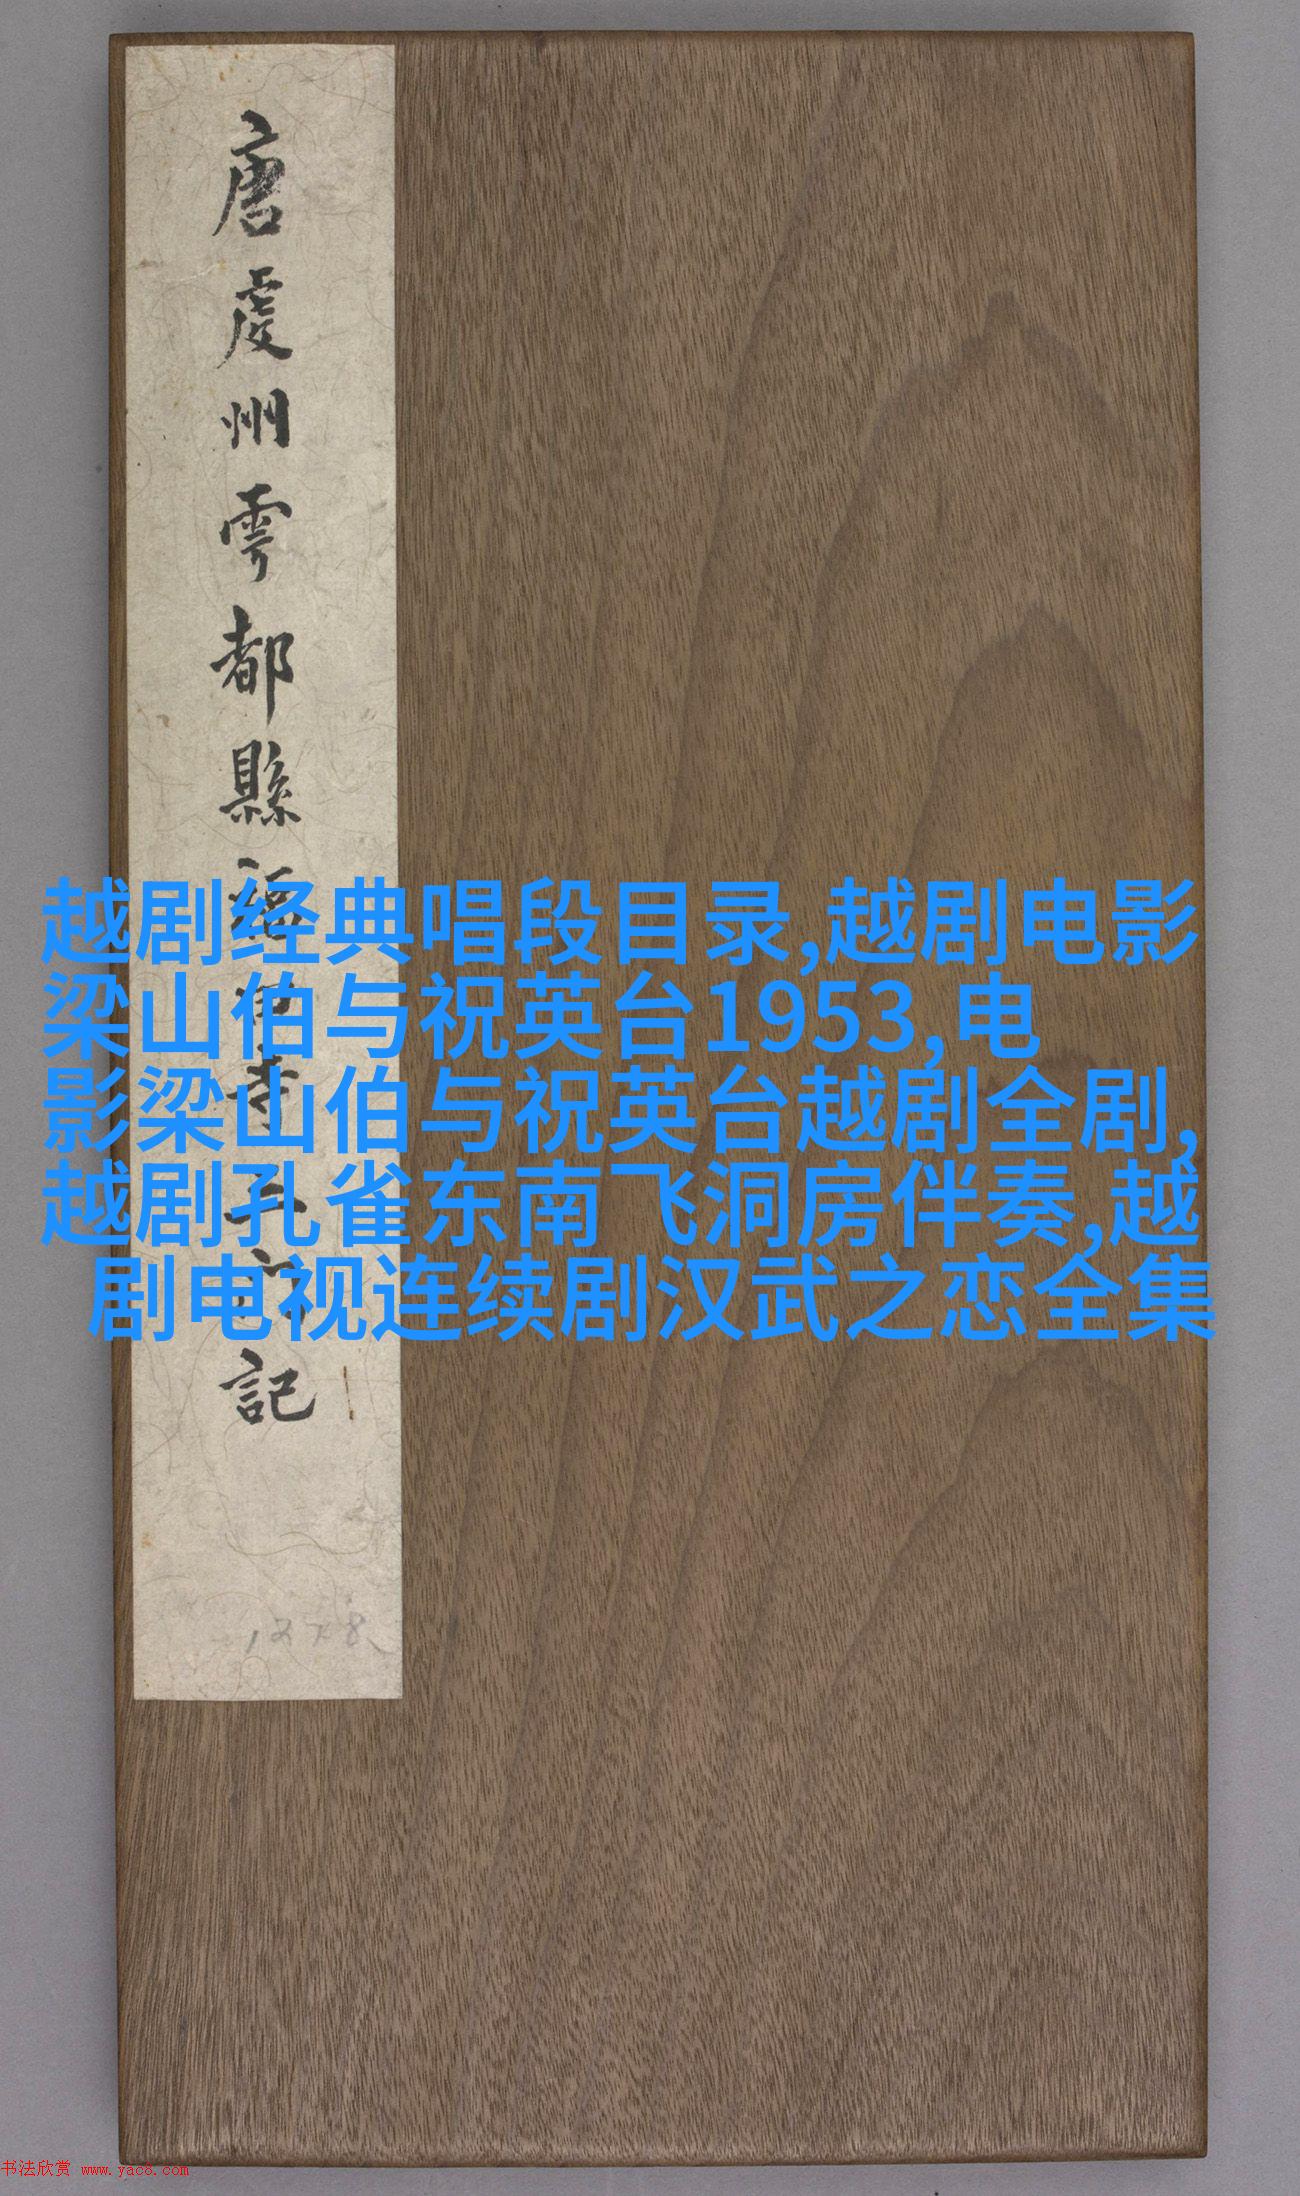 唐虔州雩都縣福田寺三門記
越剧经典唱段目录,越剧电影
梁山伯与祝英台1953,电
影梁山伯与祝英台越剧全剧,
越剧孔雀东南飞洞房伴奏,越
剧电视连续剧汉武之恋全集
书法欣赏 www.yac8.com